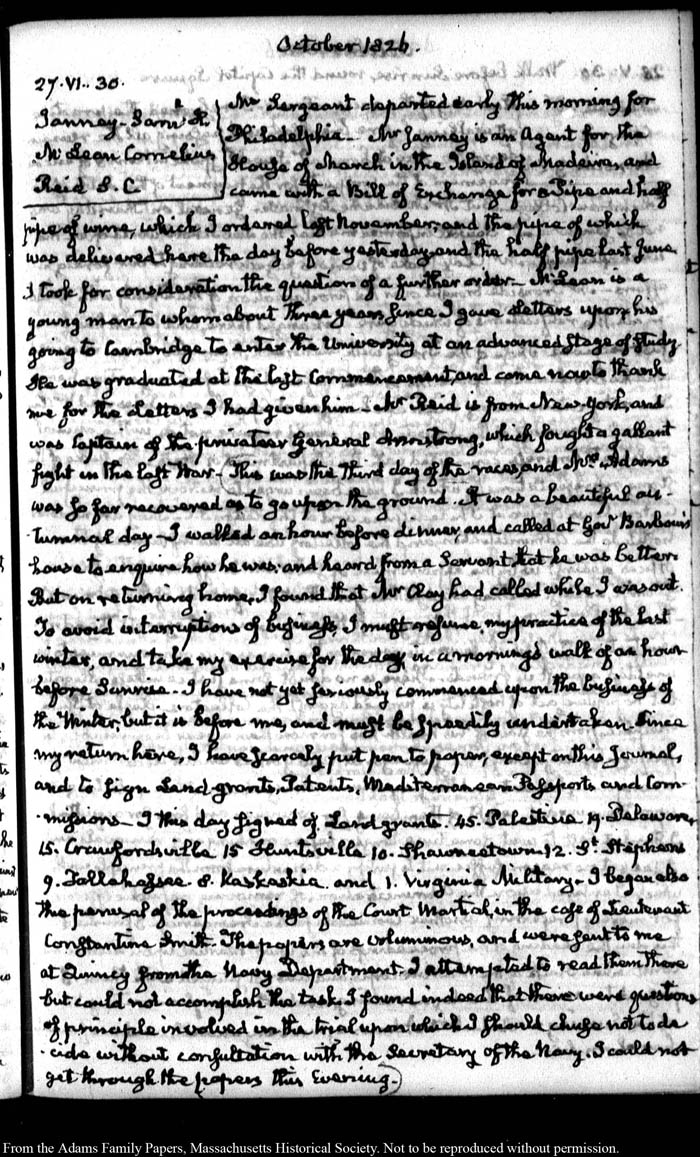 October 1826.
27. VI.. 30.
Janney. Sam.l H.
McLean Cornelius
Reid S. C.
Mr Sergeant departed early this morning for
Philadelphia. Mr Janney is an Agent for the
House of March in the Island of Madeira, and
came with a Bill of Exchange for a Pipe and half
pipe of wine, which I ordered last November; and the pipe of which
was delivered here the day before yesterday, and the half pipe last June
I took for consideration the question of a further order— McLean is a
young man to whom about three years since I gave Letters upon his
going to Cambridge to enter the University at an advanced stage of study.
He was graduated at the last Commencement, and came now to thank
me for the Letters I had given him— Mr Reid is from New-York, and
was Captain of the privateer General Armstrong, which fought a gallant
fight in the last War— (This was the third day of the races, and Mrs. Adams
was so far recovered as to go upon the ground. It was a beautiful au-
-tumnal day— I walked an hour before dinner, and called at Govr Barbour's
house to enquire how he was; and heard from a Servant that he was better.
But on returning home, I found that Mr Clay had called while I was out.
To avoid interruptions of business, I must resume, my practice of the last
winter, and take my exercise for the day, in a morning's walk of an hour
before Sunrise— I have not yet seriously commenced upon the business of
the Winter, but it is before me, and must be speedily undertaken. Since
my return here, I have scarcely put pen to paper, except on this Journal,
and to sign Land-grants, Patents, Mediterranean Passports and Com-
-missions— I this day signed of Land grants 45. Palestine 19. Delaware,
15. Crawfordsville 15 Huntsville 10. Shawneetown. 12. St. Stephens
9. Tallahassee. 8. Kaskaskia. and 1. Virginia Military— I began also
the perusal of the proceedings of the Court Martial, in the case of Lieutenant
Constantine Smith. The papers are voluminous, and were sent to me
at Quincy from the Navy Department. I attempted to read them there
but could not accomplish the task. I found indeed that there were questions
of principle involved in the trial upon which I should chuse not to de
-cide without consultation with the Secretary of the Navy. I could not
get through the papers this Evening.)
From the Adams Family Papers, Massachusetts Historical Society. Not to be reproduced without permission.